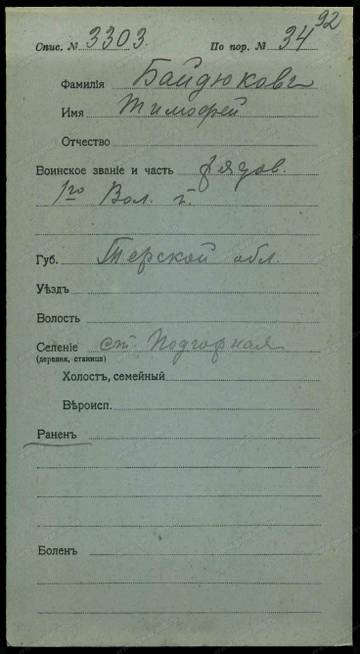 92
Опис. № 3303. По пор. № 34
Фамилія Байдюковъ
Имя Тимофей
Отчество
Воинское званіе и часть рядов.
1го Вол. п.
Губ. Терской обл.
Уѣздъ
Волость
Селеніе ст. Подгорная
(деревня, станица)
Холостъ, семейный
Вѣроисп.
Раненъ
Боленъ